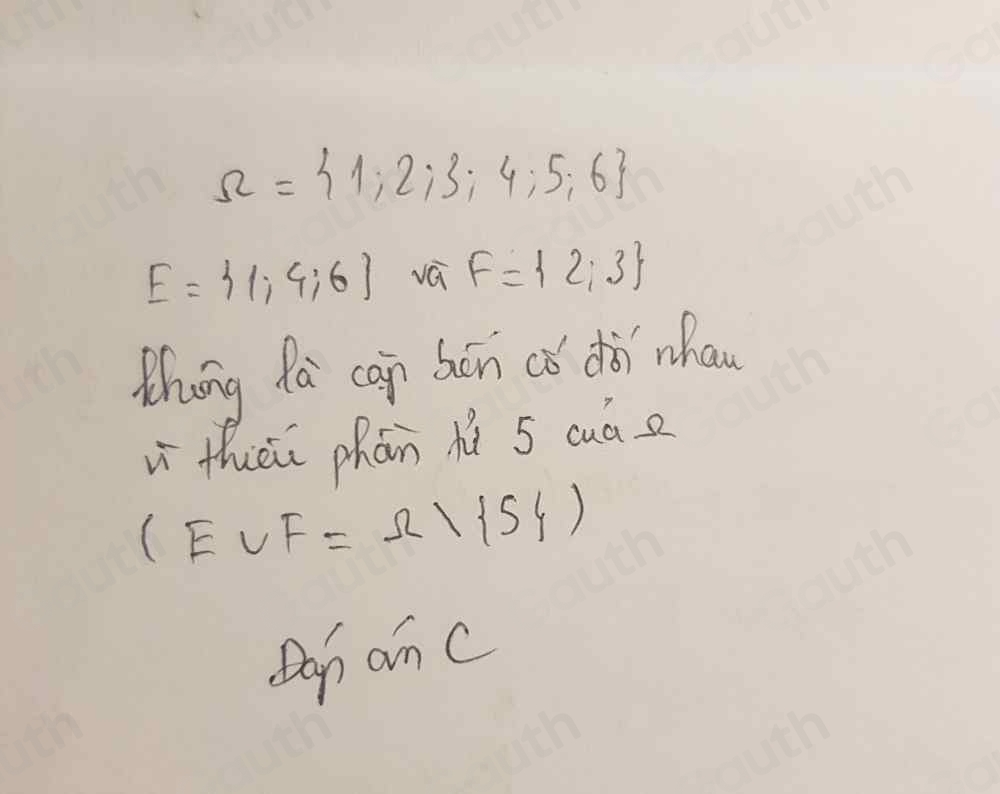 Ω = {1; 2; 3; 4; 5; 6}
E = {1; 4; 6} và F = {2; 3}
không là cặp biến cố đối nhau
vì thiếu phần tử 5 của Ω
( E ∪ F = Ω \ {5} )
Đáp án C